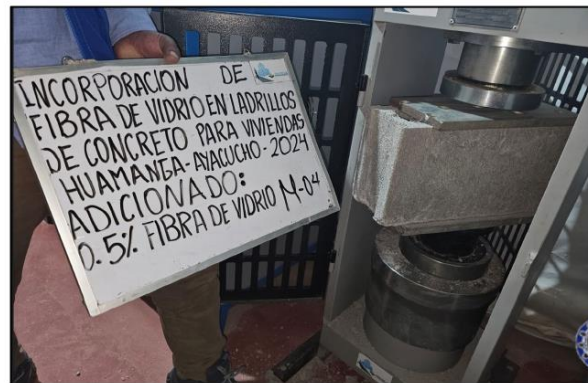 INCORPORACION DE
FIBRA DE VIDRIO EN LADRILLOS
DE CONCRETO PARA VIVIENDAS
HUAMANGA-AYACUCHO-2024
ADICIONADO:
0.5% FIBRA DE VIDRIO M-04